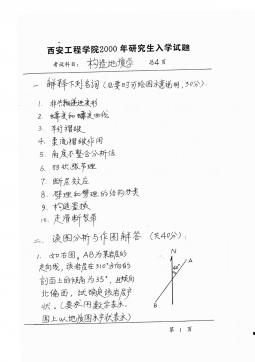 西安工程学院2000年研究生入学试题
考试科目： 构造地质学 总4页
一 解释下列名词（必要时可绘图示意说明，30分）：
1. 非共轴递进变形
2. 蠕变和蠕变曲线
3. 平行褶皱
4. 柔流褶皱作用
5. 角度不整合分析法
6. 羽状节理
7. 断层效应
8. 劈理和劈理的结构分类
9. 构造置换
10. 走滑断裂带
二、读图分析与作图解答（共40分）：
1. 如右图，AB为某岩层的
走向线，该岩层在310°方向的
剖面上的倾角为35°，且倾向
北偏西，试确定该岩层产
状。（要求用数字表示、
图上以地质图产状表示）
N
A
B
第 1 页